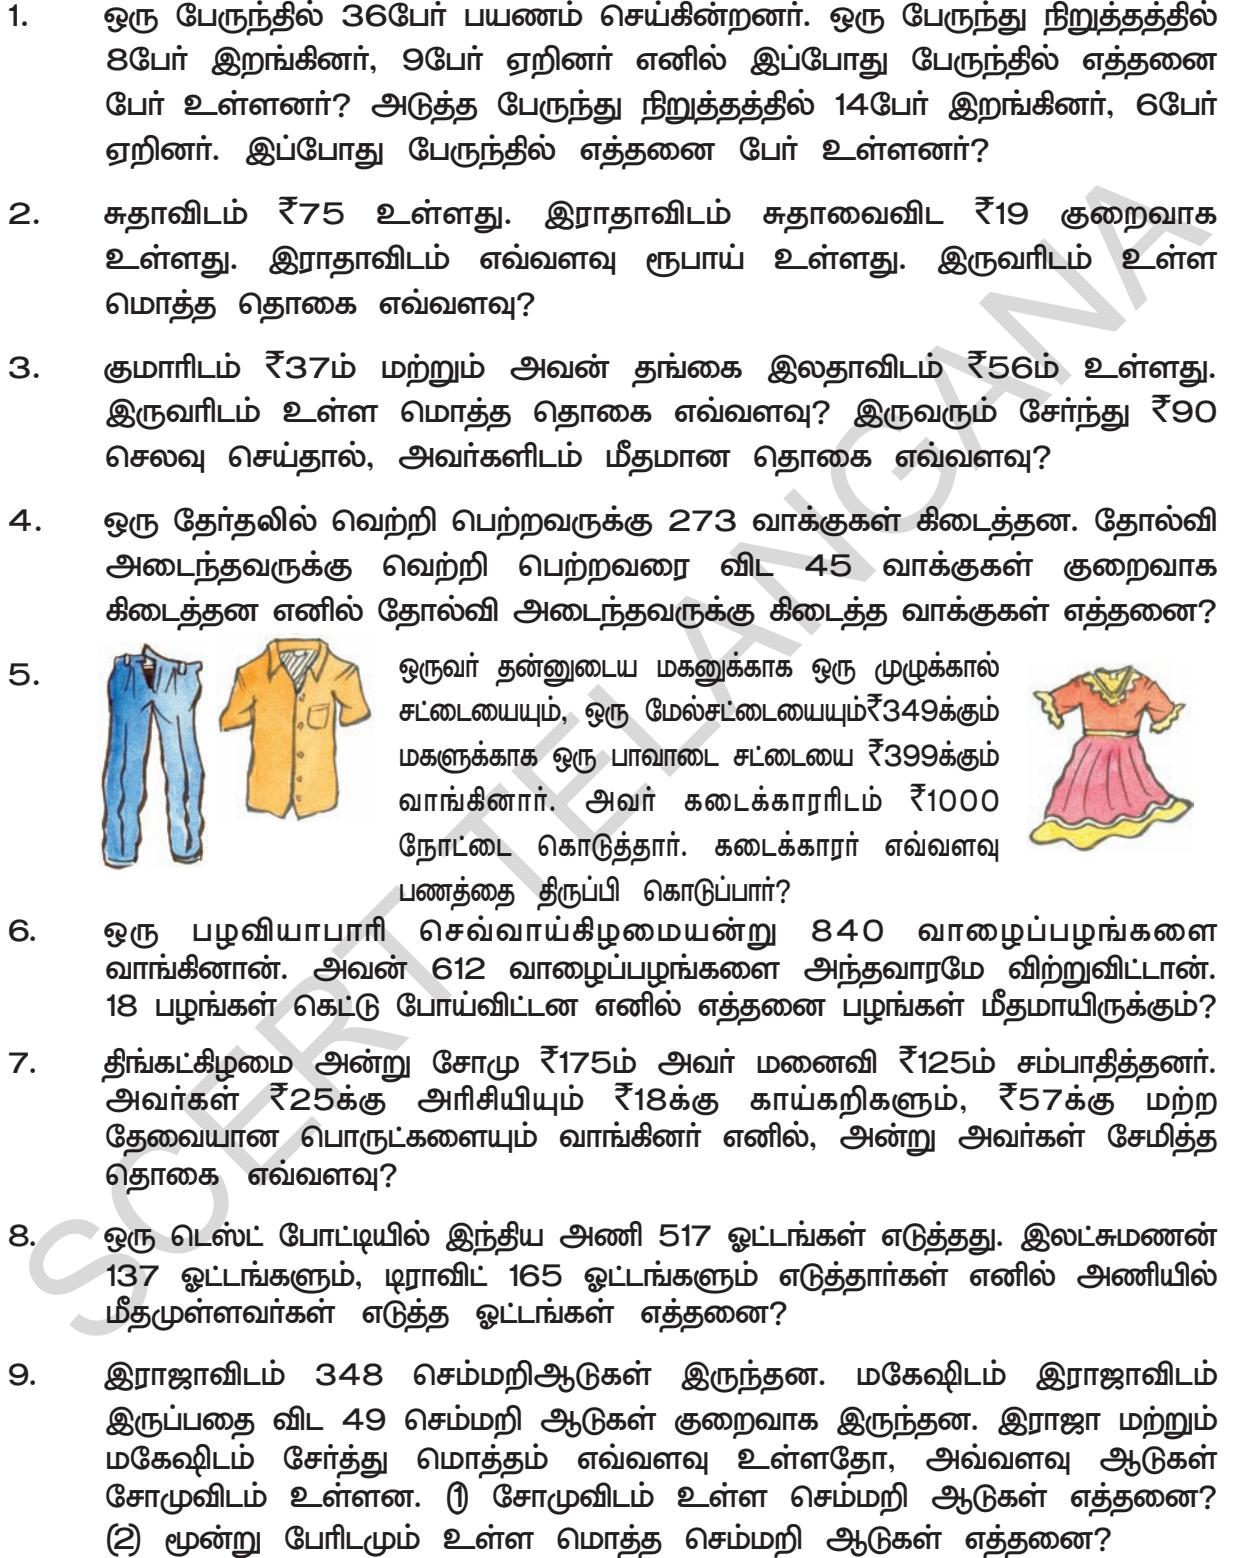 1. ஒரு பேருந்தில் 36பேர் பயணம் செய்கின்றனர். ஒரு பேருந்து நிறுத்தத்தில்
8பேர் இறங்கினர், 9பேர் ஏறினர் எனில் இப்போது பேருந்தில் எத்தனை
பேர் உள்ளனர்? அடுத்த பேருந்து நிறுத்தத்தில் 14பேர் இறங்கினர், 6பேர்
ஏறினர். இப்போது பேருந்தில் எத்தனை பேர் உள்ளனர்?
2. சுதாவிடம் ₹75 உள்ளது. இராதாவிடம் சுதாவைவிட ₹19 குறைவாக
உள்ளது. இராதாவிடம் எவ்வளவு ரூபாய் உள்ளது. இருவரிடம் உள்ள
மொத்த தொகை எவ்வளவு?
3. குமாரிடம் ₹37ம் மற்றும் அவன் தங்கை இலதாவிடம் ₹56ம் உள்ளது.
இருவரிடம் உள்ள மொத்த தொகை எவ்வளவு? இருவரும் சேர்ந்து ₹90
செலவு செய்தால், அவர்களிடம் மீதமான தொகை எவ்வளவு?
4. ஒரு தேர்தலில் வெற்றி பெற்றவருக்கு 273 வாக்குகள் கிடைத்தன. தோல்வி
அடைந்தவருக்கு வெற்றி பெற்றவரை விட 45 வாக்குகள் குறைவாக
கிடைத்தன எனில் தோல்வி அடைந்தவருக்கு கிடைத்த வாக்குகள் எத்தனை?
5. ஒருவர் தன்னுடைய மகனுக்காக ஒரு முழுக்கால்
சட்டையையும், ஒரு மேல்சட்டையையும்₹349க்கும்
மகளுக்காக ஒரு பாவாடை சட்டையை ₹399க்கும்
வாங்கினார். அவர் கடைக்காரரிடம் ₹1000
நோட்டை கொடுத்தார். கடைக்காரர் எவ்வளவு
பணத்தை திருப்பி கொடுப்பார்?
6. ஒரு பழவியாபாரி செவ்வாய்கிழமையன்று 840 வாழைப்பழங்களை
வாங்கினான். அவன் 612 வாழைப்பழங்களை அந்தவாரமே விற்றுவிட்டான்.
18 பழங்கள் கெட்டு போய்விட்டன எனில் எத்தனை பழங்கள் மீதமாயிருக்கும்?
7. திங்கட்கிழமை அன்று சோமு ₹175ம் அவர் மனைவி ₹125ம் சம்பாதித்தனர்.
அவர்கள் ₹25க்கு அரிசியியும் ₹18க்கு காய்கறிகளும், ₹57க்கு மற்ற
தேவையான பொருட்களையும் வாங்கினர் எனில், அன்று அவர்கள் சேமித்த
தொகை எவ்வளவு?
8. ஒரு டெஸ்ட் போட்டியில் இந்திய அணி 517 ஓட்டங்கள் எடுத்தது. இலட்சுமணன்
137 ஓட்டங்களும், டிராவிட் 165 ஓட்டங்களும் எடுத்தார்கள் எனில் அணியில்
மீதமுள்ளவர்கள் எடுத்த ஓட்டங்கள் எத்தனை?
9. இராஜாவிடம் 348 செம்மறிஆடுகள் இருந்தன. மகேஷிடம் இராஜாவிடம்
இருப்பதை விட 49 செம்மறி ஆடுகள் குறைவாக இருந்தன. இராஜா மற்றும்
மகேஷிடம் சேர்த்து மொத்தம் எவ்வளவு உள்ளதோ, அவ்வளவு ஆடுகள்
சோமுவிடம் உள்ளன. (1) சோமுவிடம் உள்ள செம்மறி ஆடுகள் எத்தனை?
(2) மூன்று பேரிடமும் உள்ள மொத்த செம்மறி ஆடுகள் எத்தனை?
SCERT TELANGANA